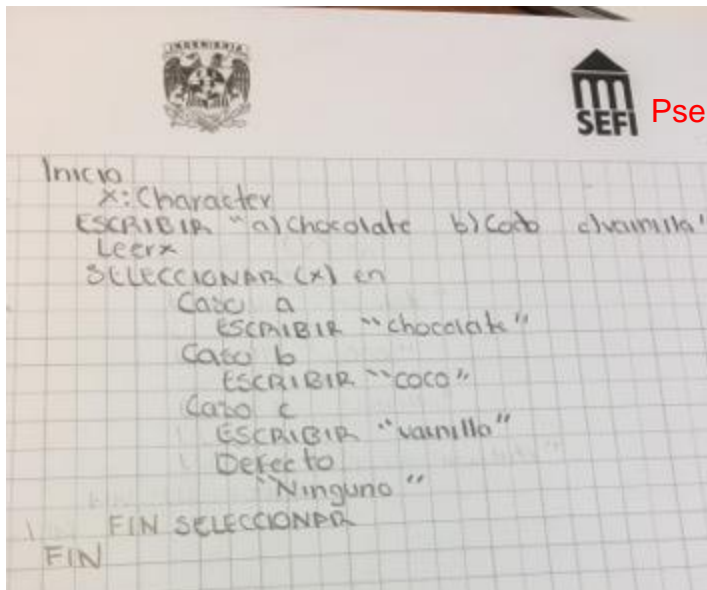 INGENIERIA
SEFI
Pse
Inicio
x: Character
ESCRIBIR "a) Chocolate b) Coco c) vainilla"
Leer x
SELECCIONAR (x) en
Caso a
ESCRIBIR "chocolate"
Caso b
ESCRIBIR "coco"
Caso c
ESCRIBIR "vainilla"
Defecto
"Ninguno"
FIN SELECCIONAR
FIN